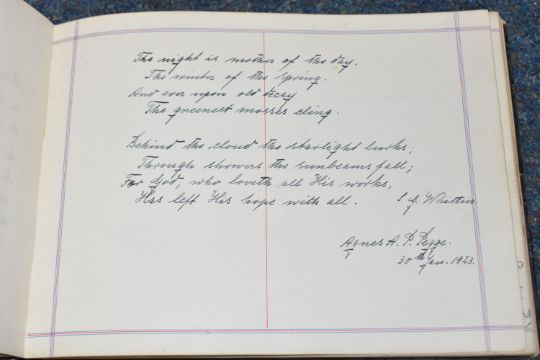 The night is mother of the day.
The winter of the spring.
And ever upon old decay
The greenest mosses cling.
Behind the cloud the starlight lurks;
Through showers the sunbeams fall;
For God, who loveth all His works,
Has left His hope with all.
Whittier
Agnes A. P.
30th Jan. 1923.